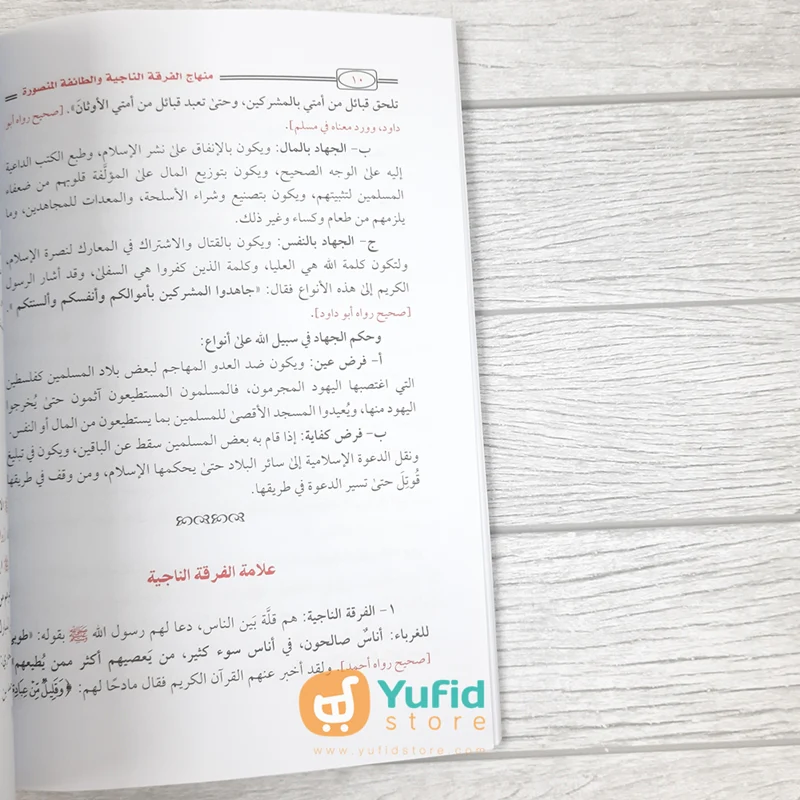 ١٠
منهاج الفرقة الناجية والطائفة المنصورة
تلحق قبائل من أمتي بالمشركين، وحتىٰ تعبد قبائل من أمتي الأوثان». [صحيح رواه أبو
داود، وورد معناه في مسلم].
ب- الجهاد بالمال: ويكون بالإنفاق علىٰ نشر الإسلام، وطبع الكتب الداعية
إليه علىٰ الوجه الصحيح، ويكون بتوزيع المال علىٰ المؤلَّفة قلوبهم من ضعفاء
المسلمين لتثبيتهم، ويكون بتصنيع وشراء الأسلحة، والمعدات للمجاهدين، وما
يلزمهم من طعام وكساء وغير ذلك.
ج- الجهاد بالنفس: ويكون بالقتال والاشتراك في المعارك لنصرة الإسلام،
ولتكون كلمة الله هي العليا، وكلمة الذين كفروا هي السفلىٰ، وقد أشار الرسول
الكريم إلىٰ هذه الأنواع فقال: «جاهدوا المشركين بأموالكم وأنفسكم وألسنتكم».
[صحيح رواه أبو داود].
وحكم الجهاد في سبيل الله علىٰ أنواع:
أ- فرض عين: ويكون ضد العدو المهاجم لبعض بلاد المسلمين كفلسطين
التي اغتصبها اليهود المجرمون، فالمسلمون المستطيعون آثمون حتىٰ يُخرجوا
اليهود منها، ويُعيدوا المسجد الأقصىٰ للمسلمين بما يستطيعون من المال أو النفس.
ب- فرض كفاية: إذا قام به بعض المسلمين سقط عن الباقين، ويكون في تبليغ
ونقل الدعوة الإسلامية إلىٰ سائر البلاد حتىٰ يحكمها الإسلام، ومن وقف في طريقها
قُوتِلَ حتىٰ تسير الدعوة في طريقها.
علامة الفرقة الناجية
١- الفرقة الناجية: هم قلَّة بَين الناس، دعا لهم رسول الله ﷺ بقوله: «طوبىٰ
للغرباء: أناسٌ صالحون، في أناس سوء كثير، من يَعصيهم أكثر ممن يُطيعهم
[صحيح رواه أحمد]. ولقد أخبر عنهم القرآن الكريم فقال مادحًا لهم: ﴿وَقَلِيلٌ مِّنْ عِبَادِيَ
Yufid
store
www.yufidstore.com